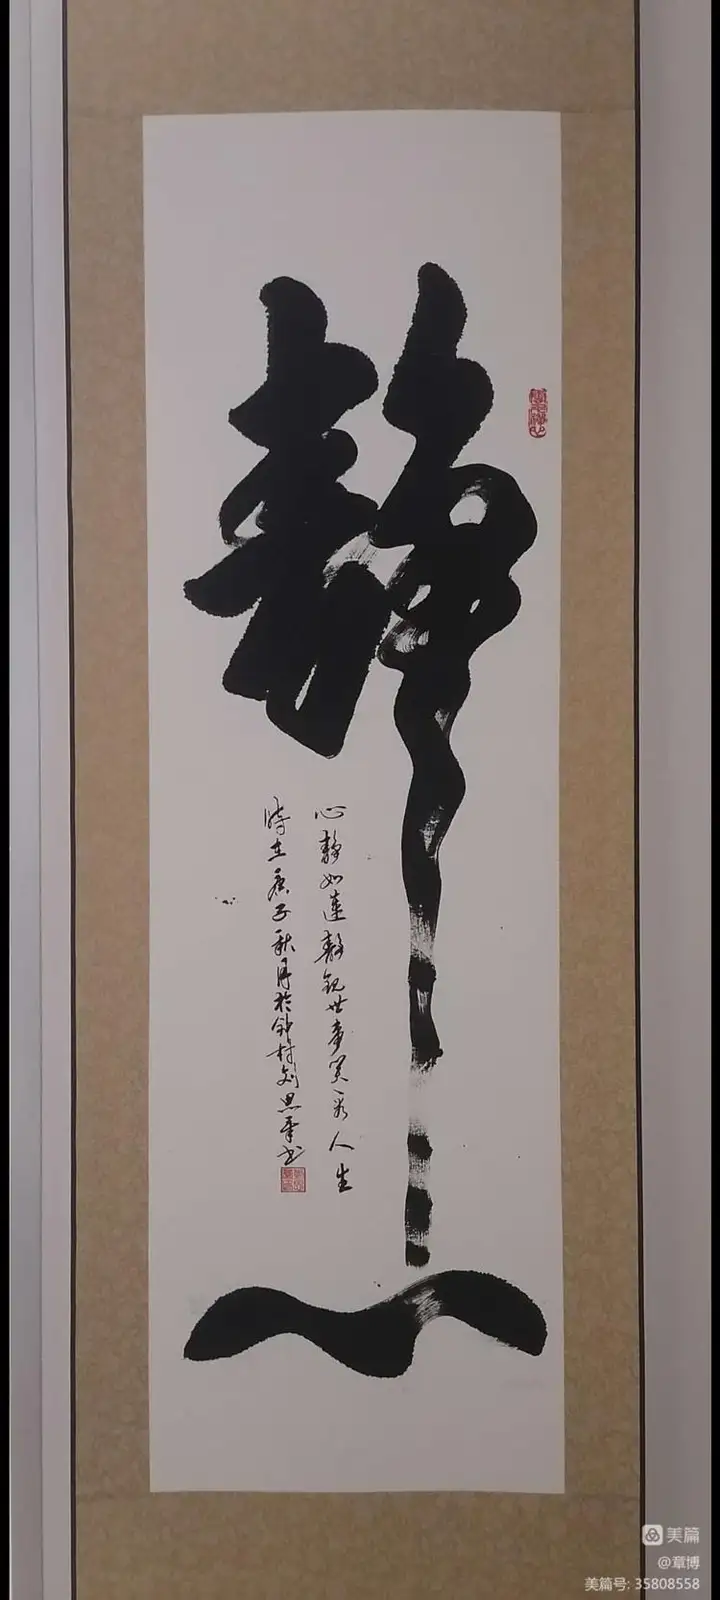 静心
心静如莲静观世事笑看人生
时在庚子秋月於钟村刘思平书
美篇
@章博
美篇号: 35808558